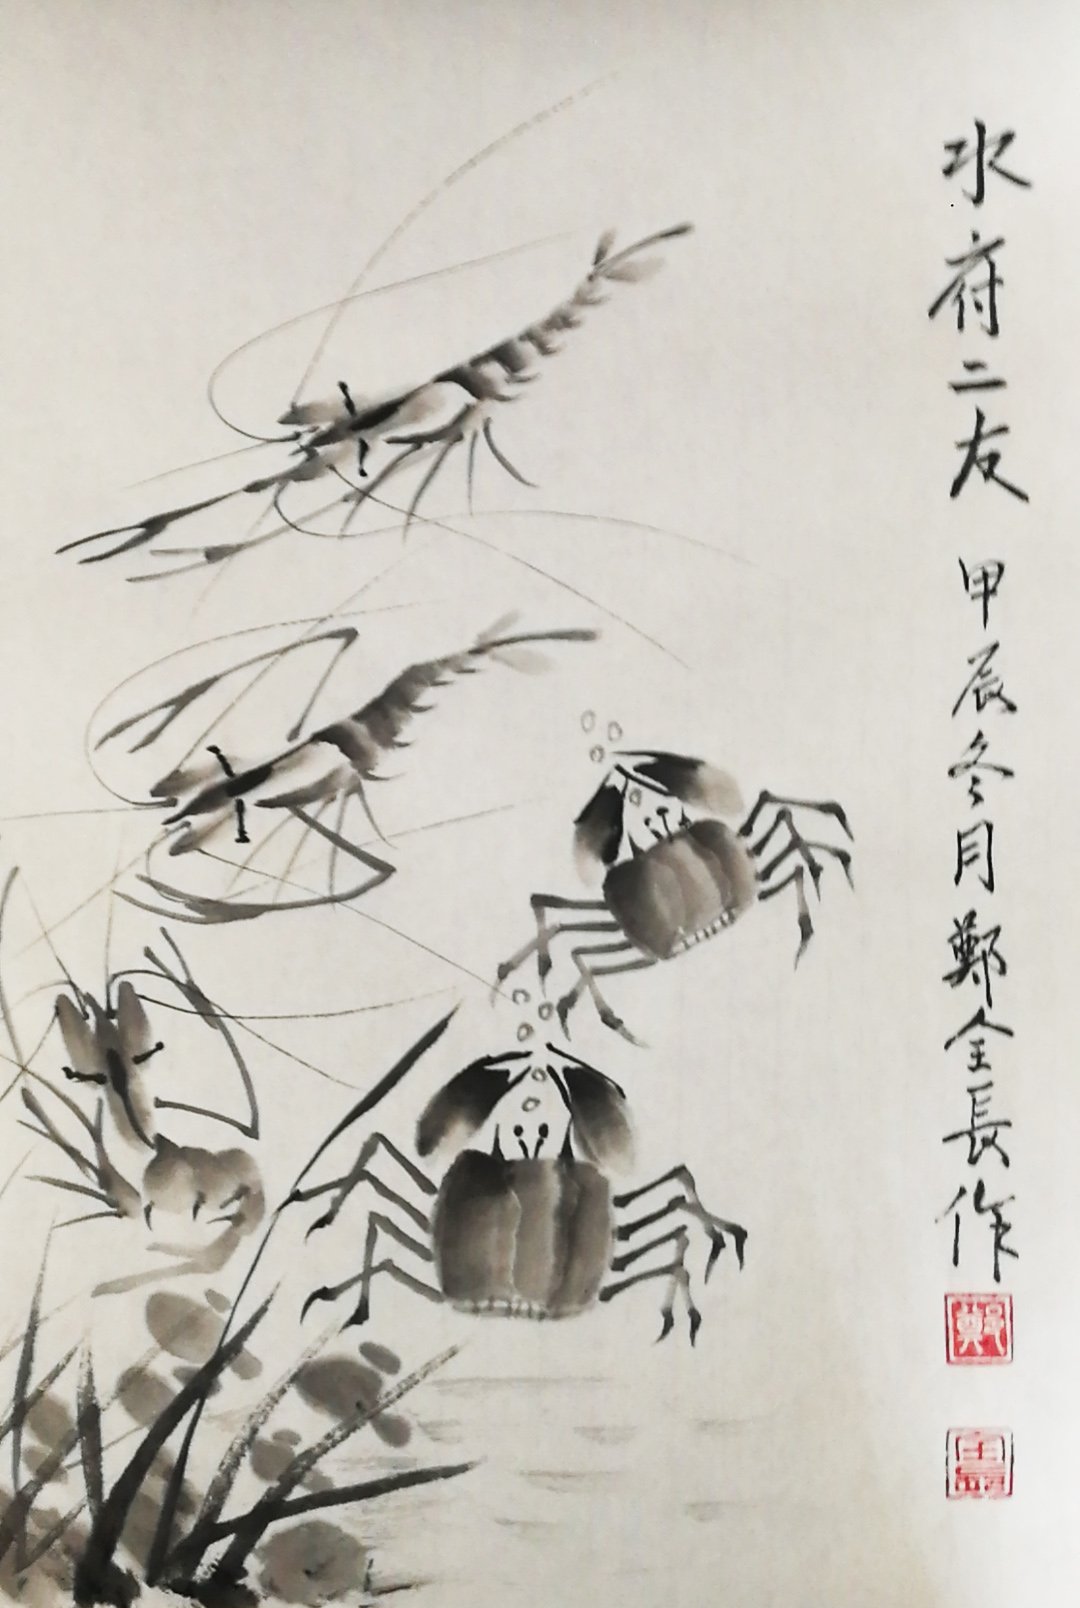 水府二友 甲辰冬月鄭全長作
鄭